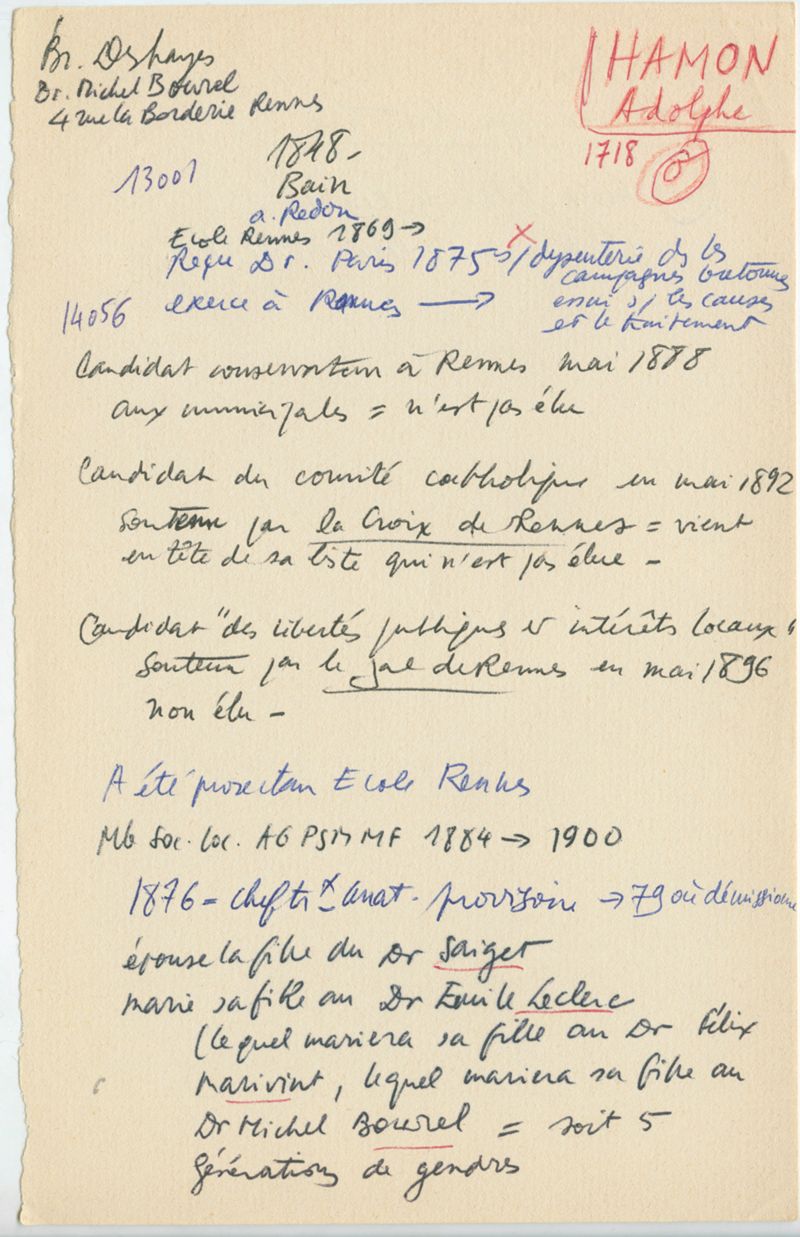 Br. Deshayes
Dr. Michel Bourel
4 rue la Borderie Rennes
HAMON
Adolphe
1718
1848-
Bain
a. Redon
13001
Ecole Rennes 1869 →
Reçu Dr. Paris 1875 s/ dysenterie ds les
campagnes bretonnes
essai s/ les causes
et le traitement
14056 exerce à Rennes →
Candidat conservateur à Rennes mai 1888
aux municipales = n'est pas élu
Candidat du comité catholique en mai 1892
soutenu par la Croix de Rennes = vient
en tête de sa liste qui n'est pas élue -
Candidat "des libertés publiques et intérêts locaux"
soutenu par le Jal de Rennes en mai 1896
non élu -
A été prosecteur Ecole Rennes
Mb Soc. loc. AG PSM MF 1884 → 1900
1876 = chef trx Anat. provisoire → 79 où démissionne
épouse la fille du Dr Saiget
marie sa fille au Dr Emile Leclerc
(lequel mariera sa fille au Dr Félix
Marivint, lequel mariera sa fille au
Dr Michel Bourel = soit 5
générations de gendres